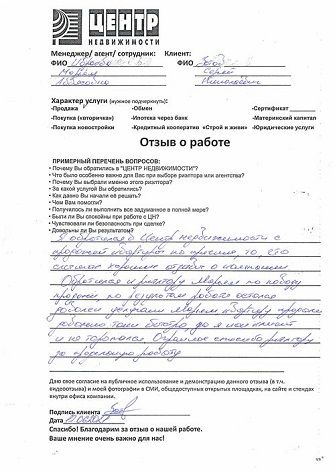 ЦЕНТР
НЕДВИЖИМОСТИ
Менеджер/ агент/ сотрудник: Клиент:
ФИО ФИО
Характер услуги (нужное подчеркнуть):
-Продажа -Обмен -Сертификат
-Покупка (вторичка) -Ипотека через банк -Материнский капитал
-Покупка новостройки -Кредитный кооператив «Строй и живи» -Юридические услуги
Отзыв о работе
ПРИМЕРНЫЙ ПЕРЕЧЕНЬ ВОПРОСОВ:
• Почему Вы обратились в "ЦЕНТР НЕДВИЖИМОСТИ"?
• Что было особенно важно для Вас при выборе риэлтора или агентства?
• Почему Вы выбрали именно этого риэлтора?
• За какой услугой Вы обратились?
• Как давно Вы начали её решать?
• Чем Вам помогли?
• Получилось ли выполнить все задуманное в полной мере?
• Были ли Вы спокойны при работе с ЦН?
• Чувствовали ли безопасность при сделке?
• Довольны ли Вы результатом?
Я обратился в Центр недвижимости с
продажей квартиры по причине, то, что
слышал хорошие отзывы о компании
Обратился к риэлтору Марине по поводу
продажи, по результатам работы остался
доволен, Марине квартиру продали
довольно таки быстро, да я сам
и не торопился. Огромное спасибо риэлтору
за проделанную работу
Даю свое согласие на публичное использование и демонстрацию данного отзыва (в т.ч.
видеоотзыва) и моей фотографии в СМИ, общедоступных открытых площадках, на сайте и стендах
внутри офиса компании.
Подпись клиента
Дата
Спасибо! Благодарим за отзыв о нашей работе.
Ваше мнение очень важно для нас!